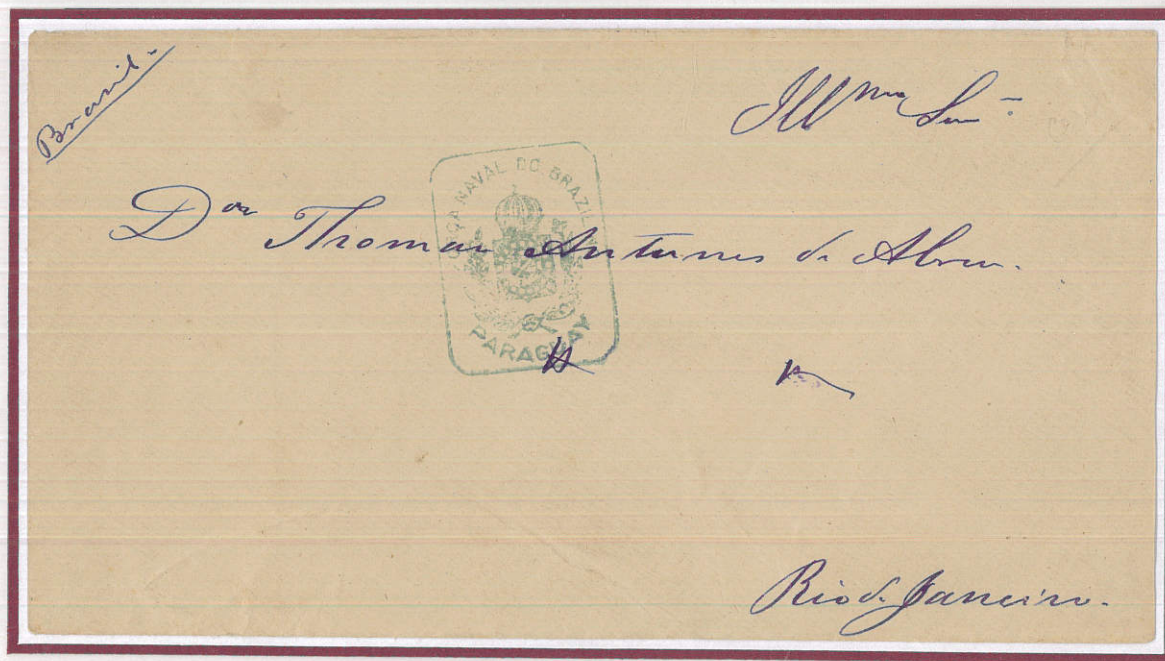 Brasil.
Illmo Snr.
FORÇA NAVAL DO BRAZIL NO
PARAGUAY
Dor Thomas Antunes de Abreu.
Rio de Janeiro.